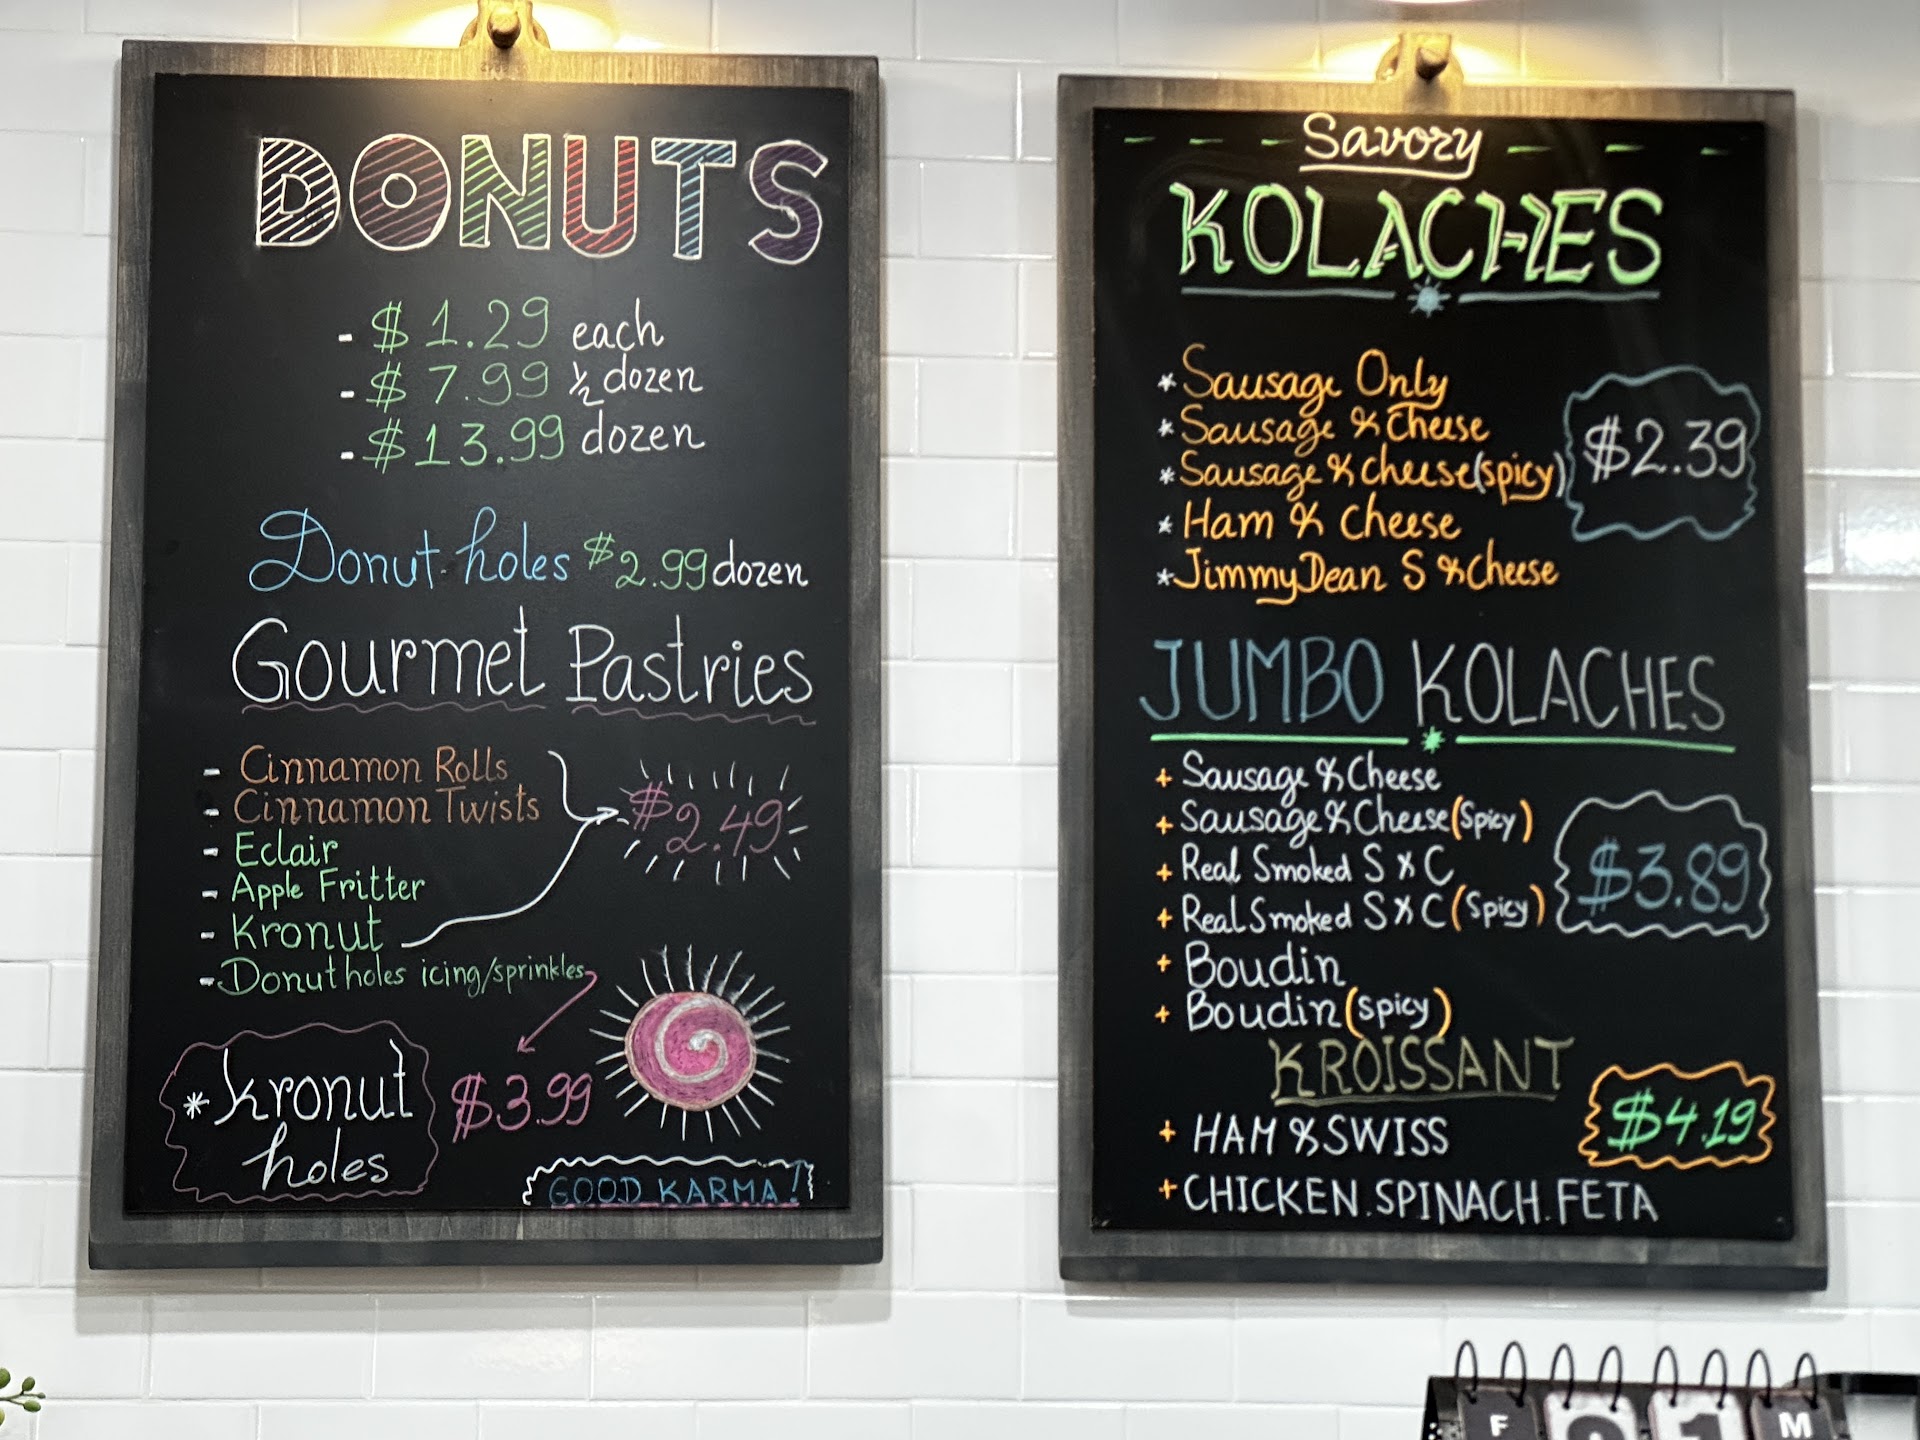 DONUTS
- $1.29 each
- $7.99 ½ dozen
- $13.99 dozen
Donut holes $2.99 dozen
Gourmet Pastries
- Cinnamon Rolls
- Cinnamon Twists
$2.49
- Eclair
- Apple Fritter
- Kronut
- Donut holes icing/sprinkles
* Kronut
holes
$3.99
GOOD KARMA!
Savory
KOLACHES
* Sausage Only
* Sausage & Cheese
* Sausage & Cheese (spicy)
$2.39
* Ham & Cheese
* Jimmy Dean S & Cheese
JUMBO KOLACHES
+ Sausage & Cheese
+ Sausage & Cheese (Spicy)
+ Real Smoked S & C
$3.89
+ Real Smoked S & C (Spicy)
+ Boudin
+ Boudin (spicy)
KROISSANT
$4.19
+ HAM & SWISS
+ CHICKEN.SPINACH.FETA
F M